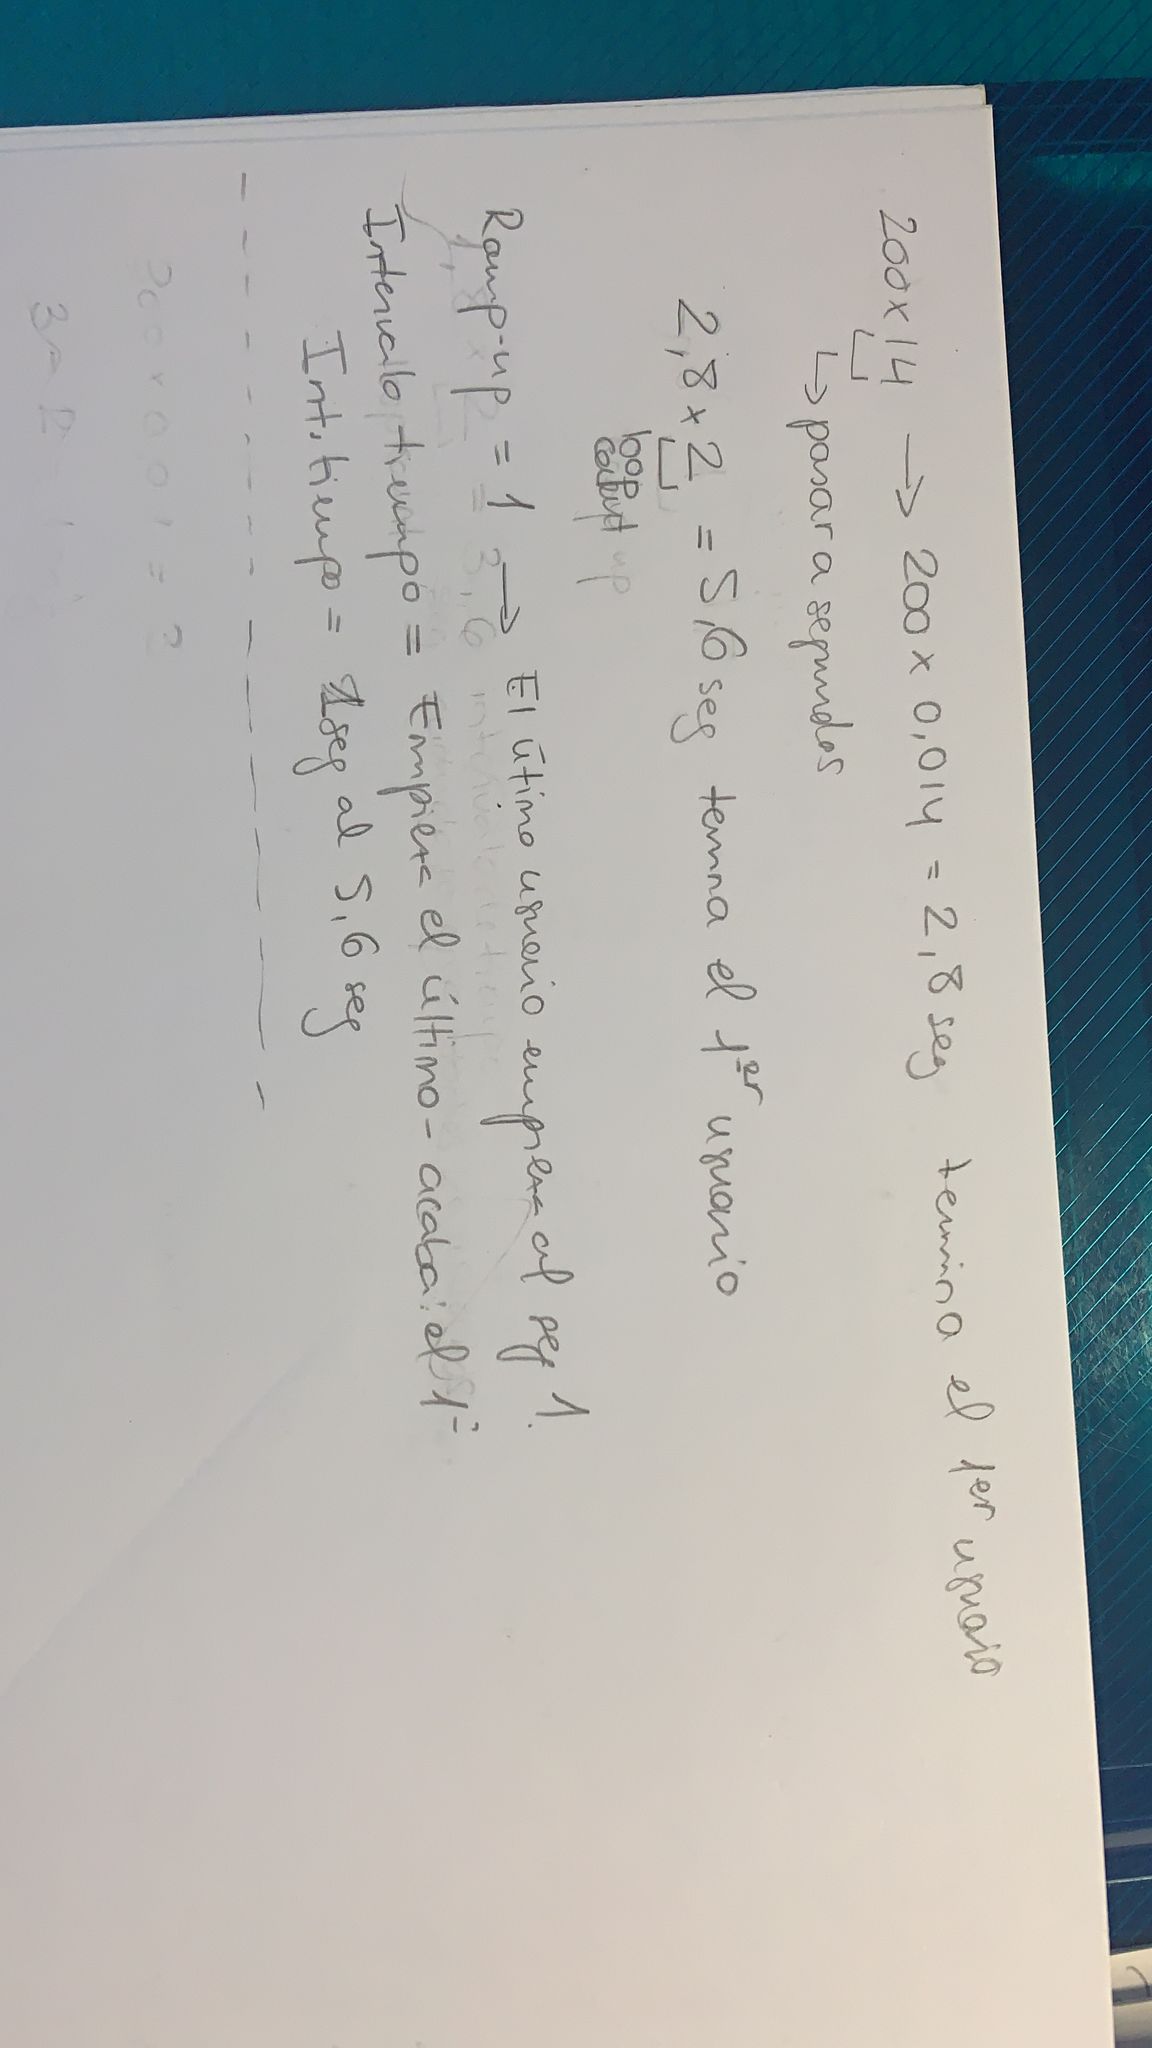 200 x 14 → 200 x 0,014 = 2,8 seg termina el 1er usuario
↳ pasar a segundos
2,8 x 2 = 5,6 seg temna el 1er usuario
loop
Ramp-up = 1 → El útimo usuario empieza al seg 1.
Intervalo tiempo = Empieza el último - acaba el 1º
Int. tiempo = 1seg al 5,6 seg